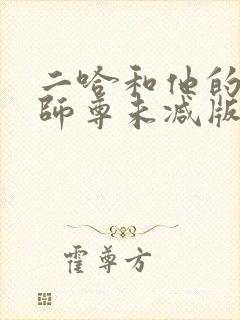 二哈和他的
师尊未减版
霍尊方